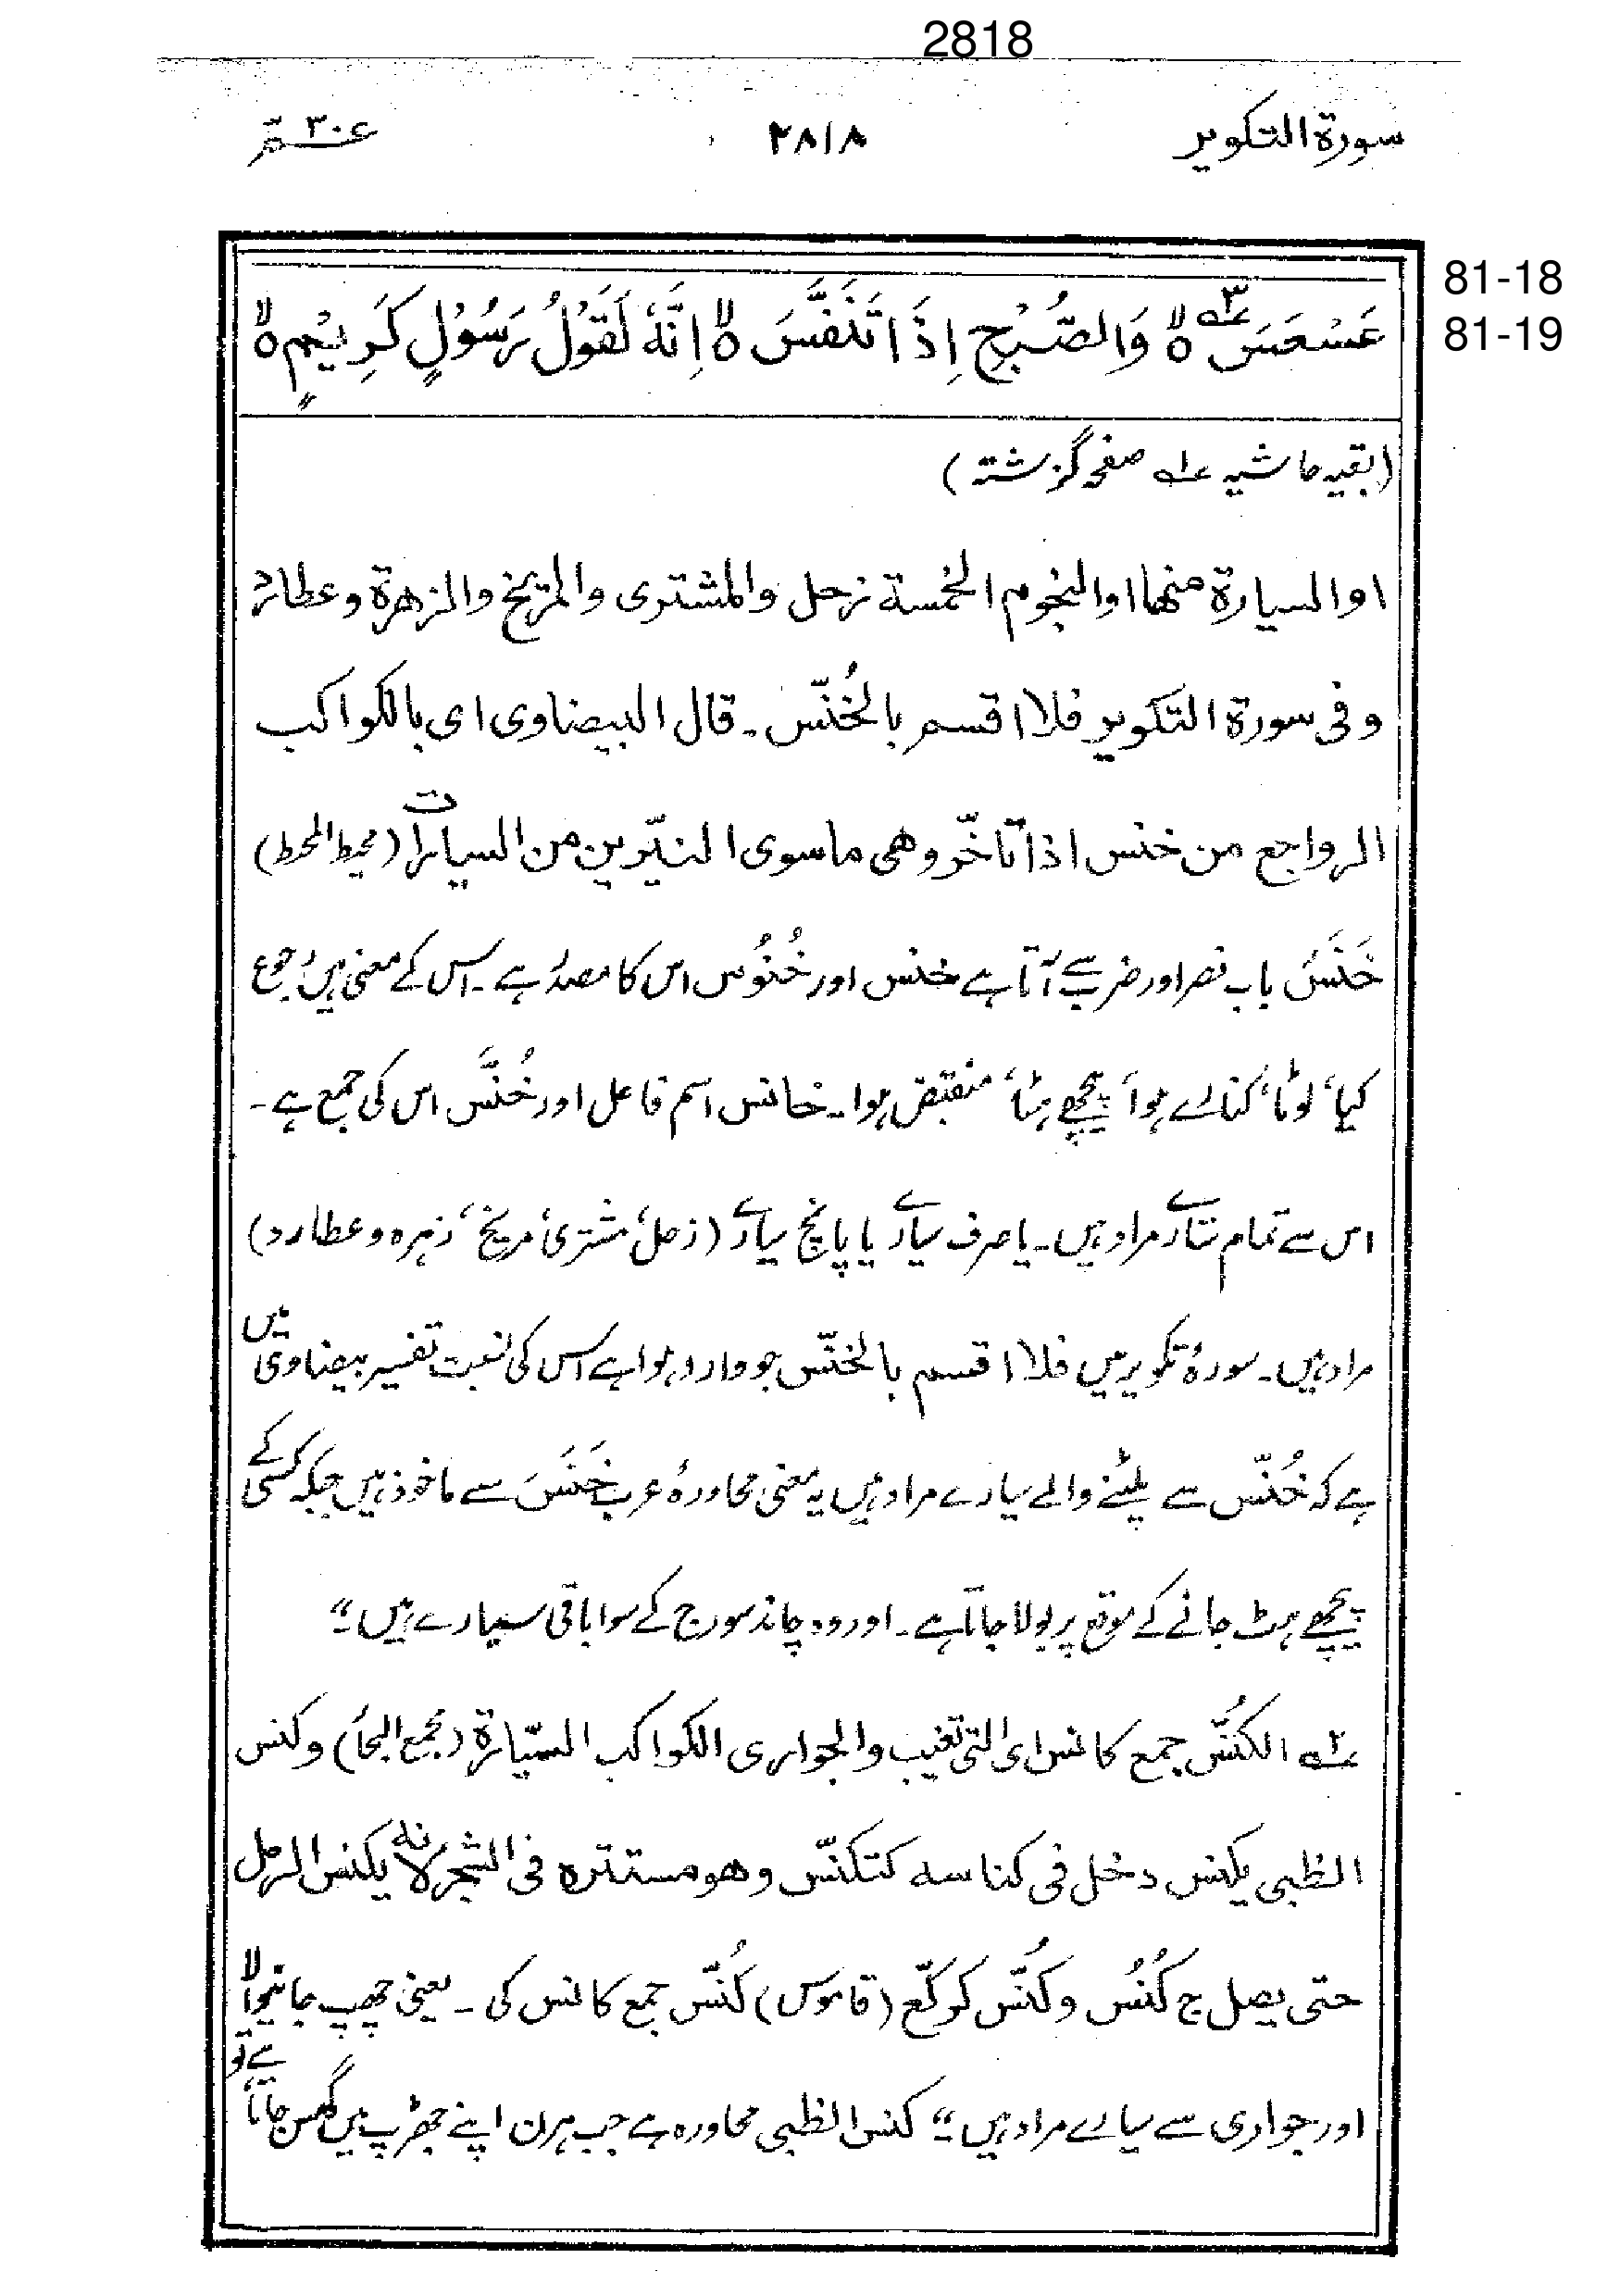 2818
سورة التكوير ۲۸۱۸ عــم ۳۰
عَسْعَسَ ۙ۳ وَالصُّبْحِ اِذَا تَنَفَّسَ ۙ اِنَّهٗ لَقَوْلُ رَسُوْلٍ كَرِيْمٍ ۙ
81-18
81-19
(بقیہ حاشیہ ۱ صفحہ گزشتہ)
او السيارة منها او النجوم الخمسة زحل والمشترى والمريخ والزهرة وعطارد
وفى سورة التكوير فلا اقسم بالخُنّس ۔ قال البيضاوى اى بالكواكب
الرواجع من خنس اذا تأخّر وهى ماسوى النيّرين من السيارات (محيط المحيط)
خَنَسَ باب نصر اور ضرب سے آتا ہے خنس اور خُنُوس اس کا مصدر ہے ۔ اس کے معنی ہیں رجوع
کیا، لوٹا، کنارے ہوا، پیچھے ہٹا، منقبض ہوا ۔ خانس اسم فاعل اور خُنَّس اس کی جمع ہے ۔
اس سے تمام ستارے مراد ہیں ۔ یا صرف سیارے یا پانچ سیارے (زحل، مشتری، مریخ، زہرہ و عطارد)
مراد ہیں ۔ سورۂ تکویر میں فلا اقسم بالخنّس جو وارد ہوا ہے اس کی نسبت تفسیر بیضاوی میں
ہے کہ خُنّس سے پلٹنے والے سیارے مراد ہیں یہ معنی محاورۂ عرب خَنَسَ سے ماخوذ ہیں جبکہ کسی کے
پیچھے ہٹ جانے کے موقع پر بولا جاتا ہے ۔ اور وہ چاند سورج کے سوا باقی سیارے ہیں ۔"
۲ الكنُّس جمع كانس اى التى تغيب والجوارى الكواكب السيّارة (مجمع البحار) وكنس
الظبى يكنس دخل فى كناسه كتكنّس وهو مستتره فى الشجر لانه يكنس الرمل
حتى يصل ج كُنُس وكُنَّس كركّع (قاموس) كُنّس جمع کانس کی ۔ یعنی چھپ جانیوالا
اور جواری سے سیارے مراد ہیں ۔" کنس الظبی محاورہ ہے جب ہرن اپنے جھڑپ میں گھس جاتا ہے تو